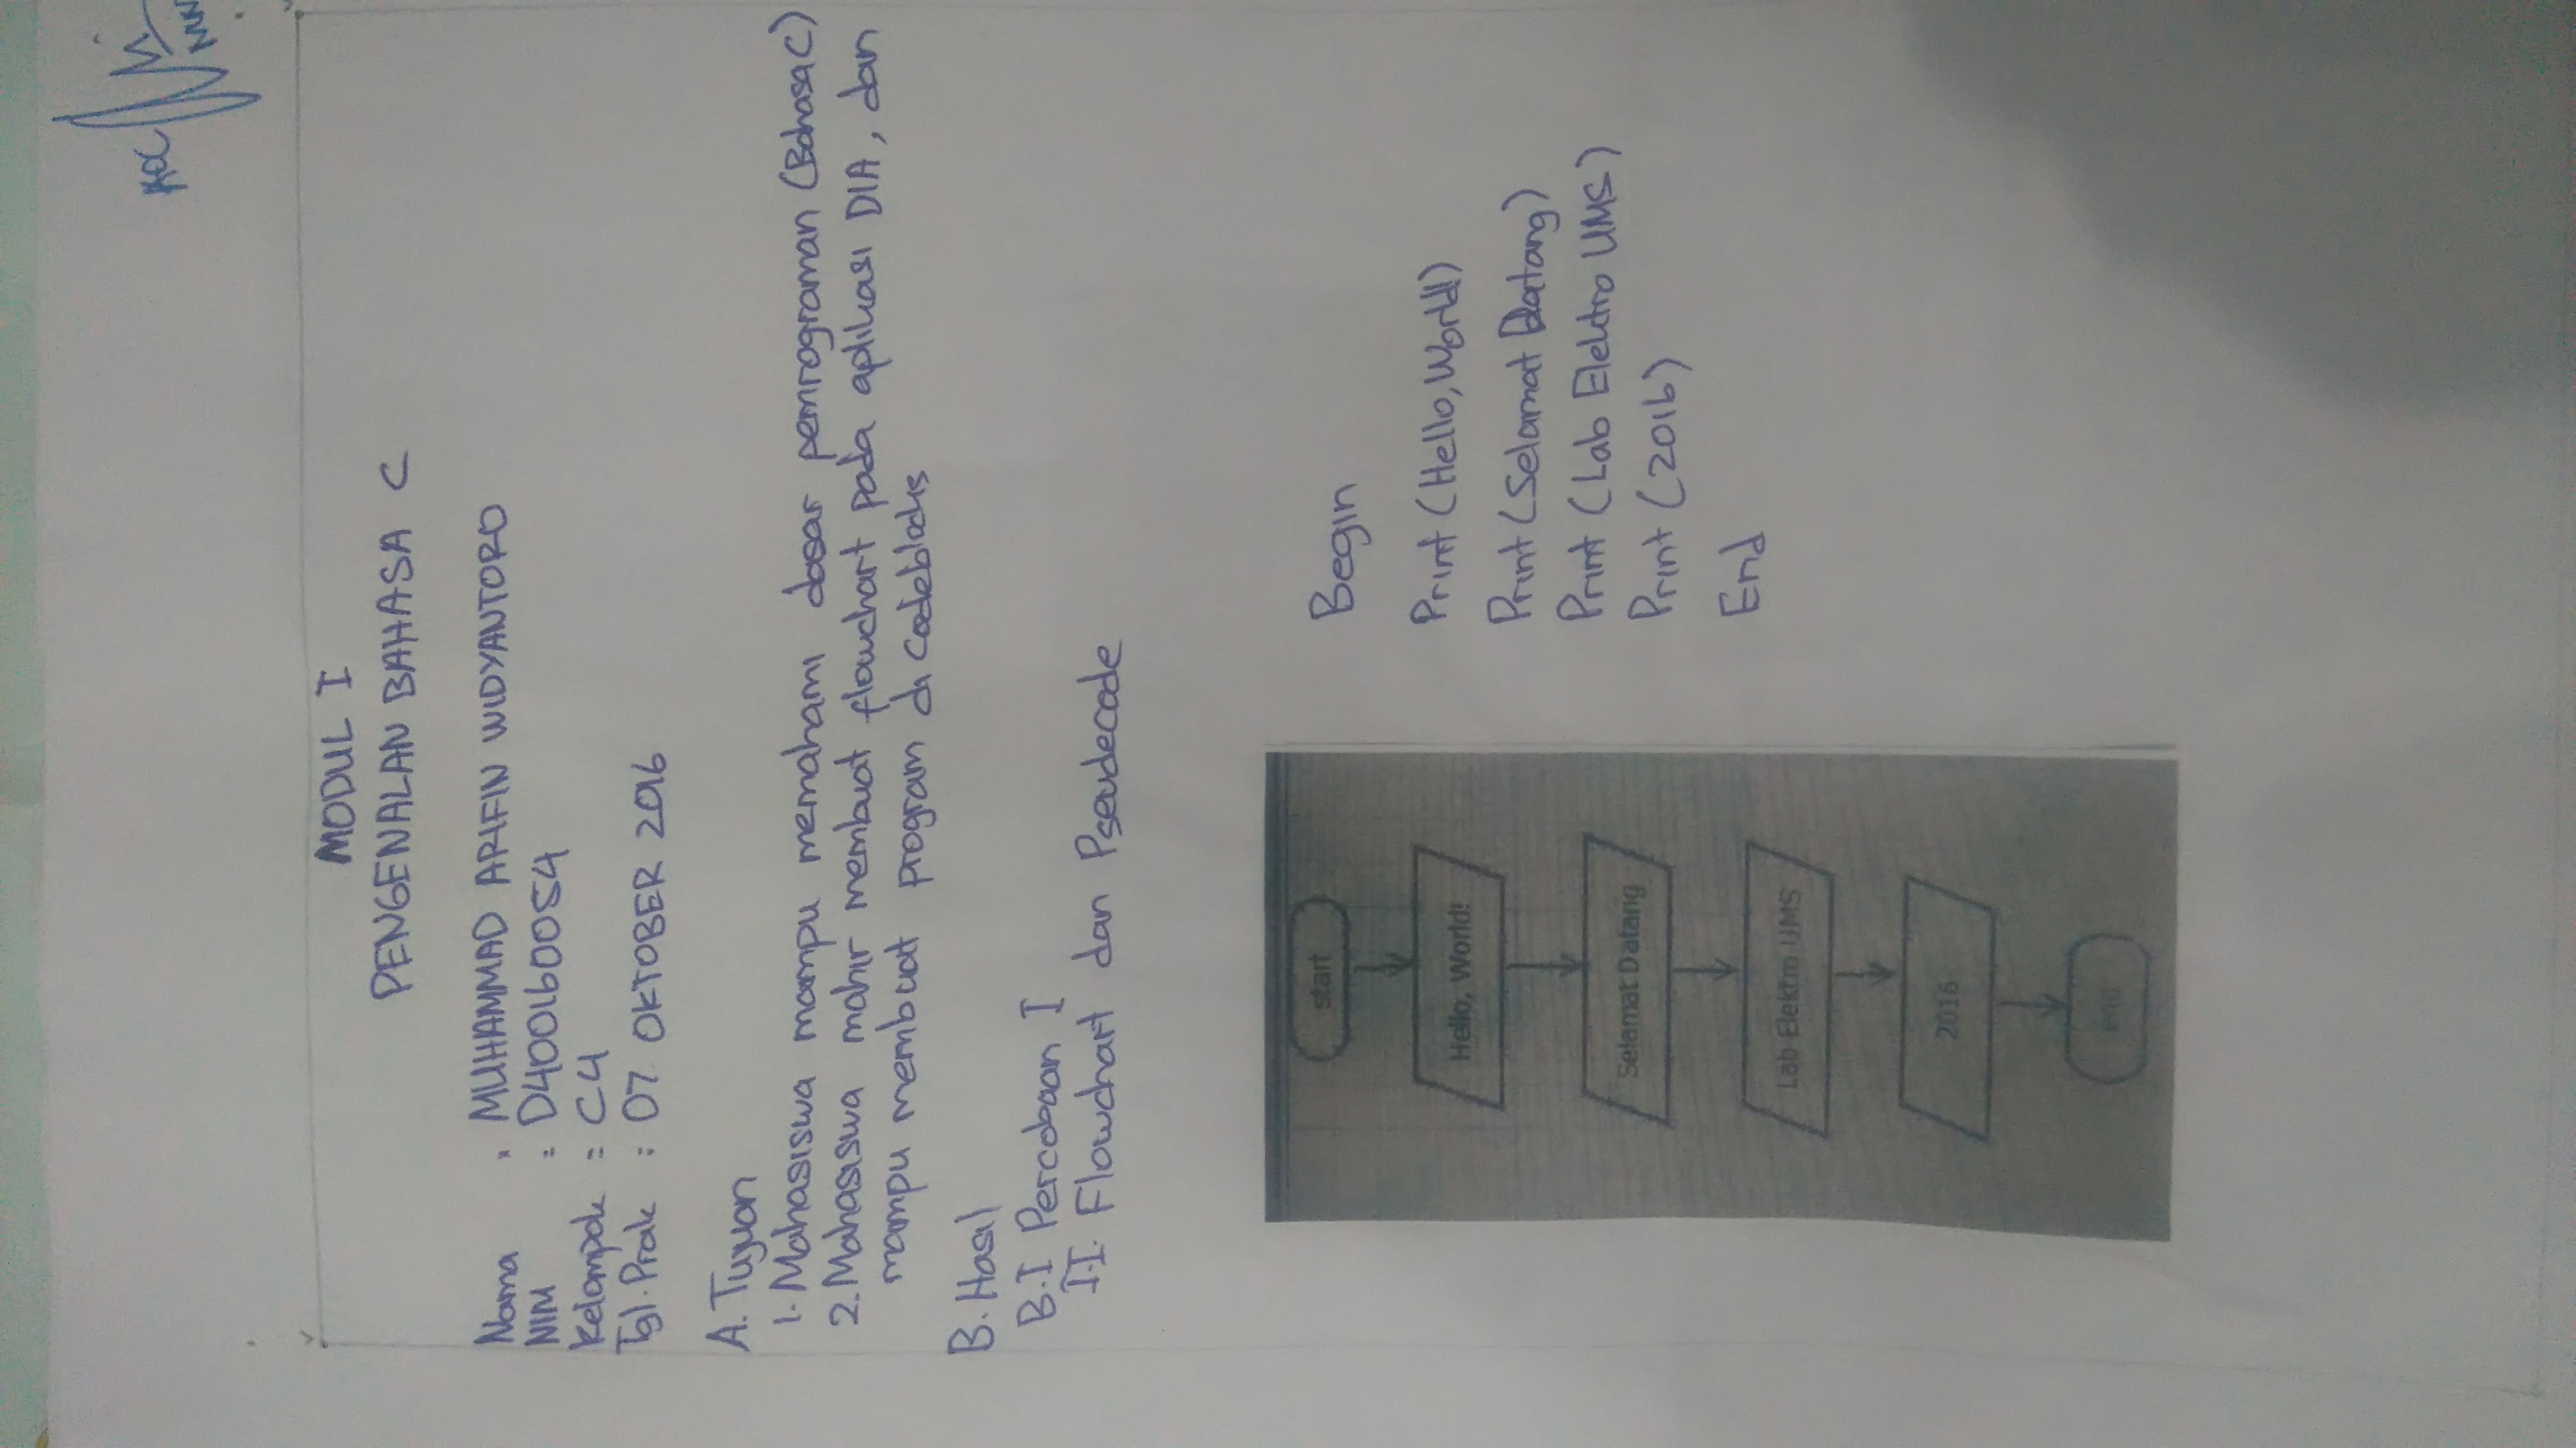 ACC
MODUL I
PENGENALAN BAHASA C
Nama : MUHAMMAD ARIFIN WIDYANTORO
NIM : D400160054
Kelompok : C4
Tgl. Prak : 07 OKTOBER 2016
A. Tujuan
1. Mahasiswa mampu memahami dasar pemrograman (Bahasa C)
2. Mahasiswa mahir membuat flowchart pada aplikasi DIA, dan
mampu membuat program di Codeblocks
B. Hasil
B.I Percobaan I
I.I. Flowchart dan Pseudecode
start
Hello, World!
Selamat Datang
Lab Elektro UMS
2016
end
Begin
Print (Hello, World!)
Print (Selamat Datang)
Print (Lab Elektro UMS)
Print (2016)
End